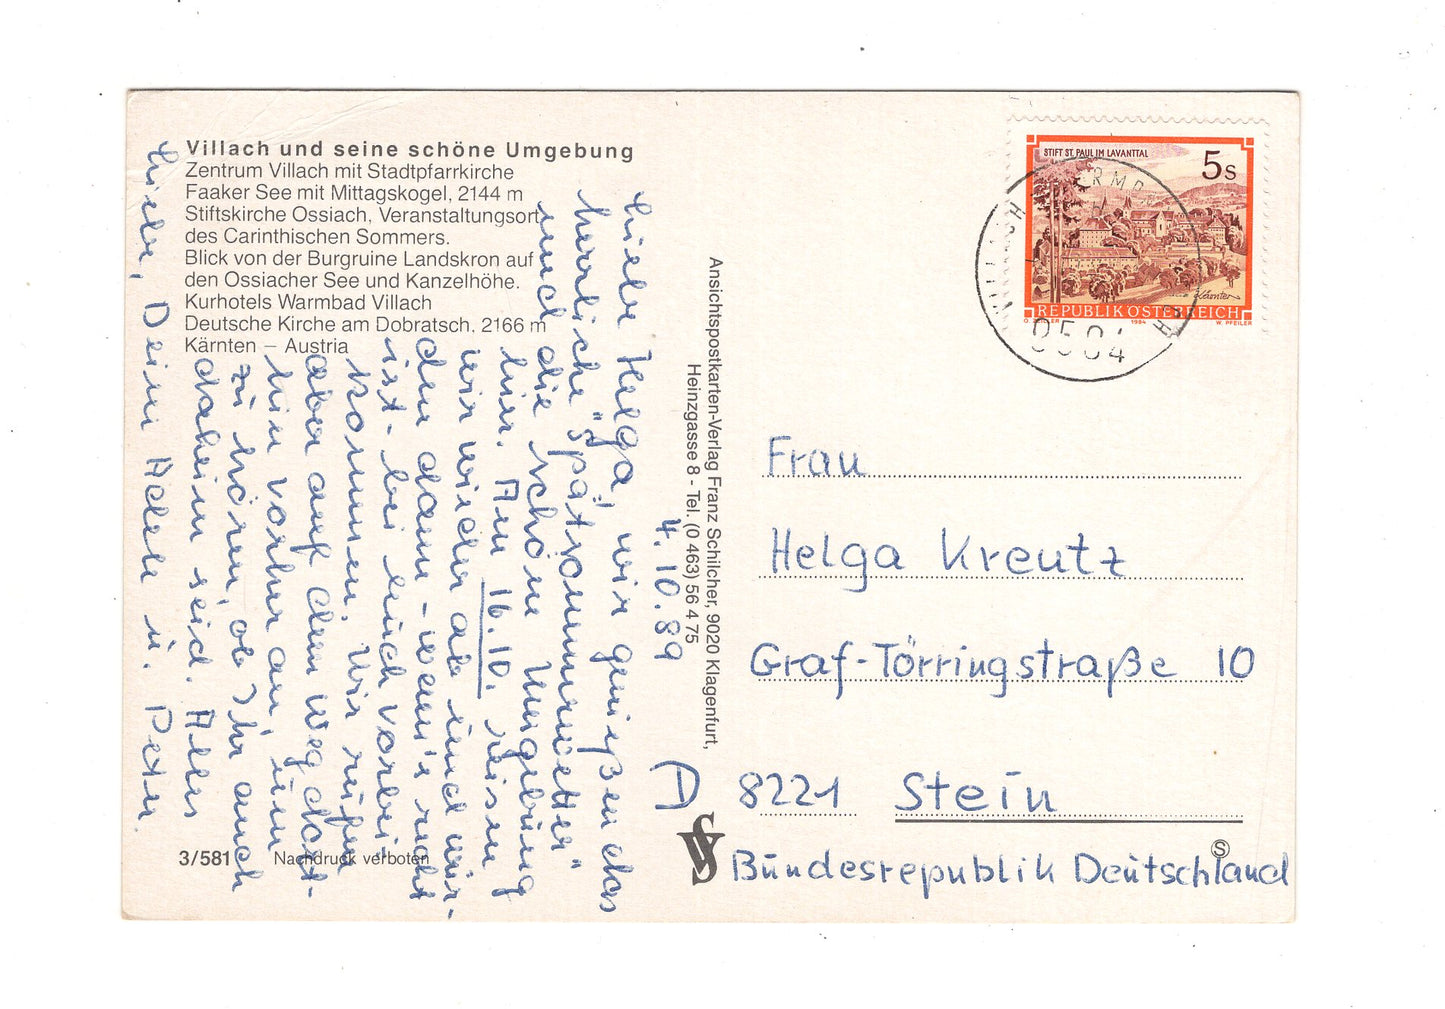 Villach und seine schöne Umgebung
Zentrum Villach mit Stadtpfarrkirche
Faaker See mit Mittagskogel, 2144 m
Stiftskirche Ossiach, Veranstaltungsort
des Carinthischen Sommers.
Blick von der Burgruine Landskron auf
den Ossiacher See und Kanzelhöhe.
Kurhotels Warmbad Villach
Deutsche Kirche am Dobratsch, 2166 m
Kärnten – Austria
4.10.89
Liebe Helga, wir genießen das
herrliche "Spätsommerwetter"
und die schöne Umgebung
hier. Am 16.10. reisen
wir wieder ab und wür-
den dann - wenn's recht
ist - bei euch vorbei
kommen. Wir rufen
aber auf dem Weg dort-
hin vorher an, um
zu hören, ob Ihr auch
daheim seid. Alles
Liebe, Deine Adele u. Peter.
3/581 Nachdruck verboten
Ansichtspostkarten-Verlag Franz Schilcher, 9020 Klagenfurt,
Heinzgasse 8 - Tel. (0 463) 56 4 75
STIFT ST. PAUL IM LAVANTTAL
5s
Kärnten
REPUBLIK ÖSTERREICH
1984 W. PFEILER
VILLACH
9504
Frau
Helga Kreutz
Graf-Törringstraße 10
D 8221 Stein
Bundesrepublik Deutschland
S